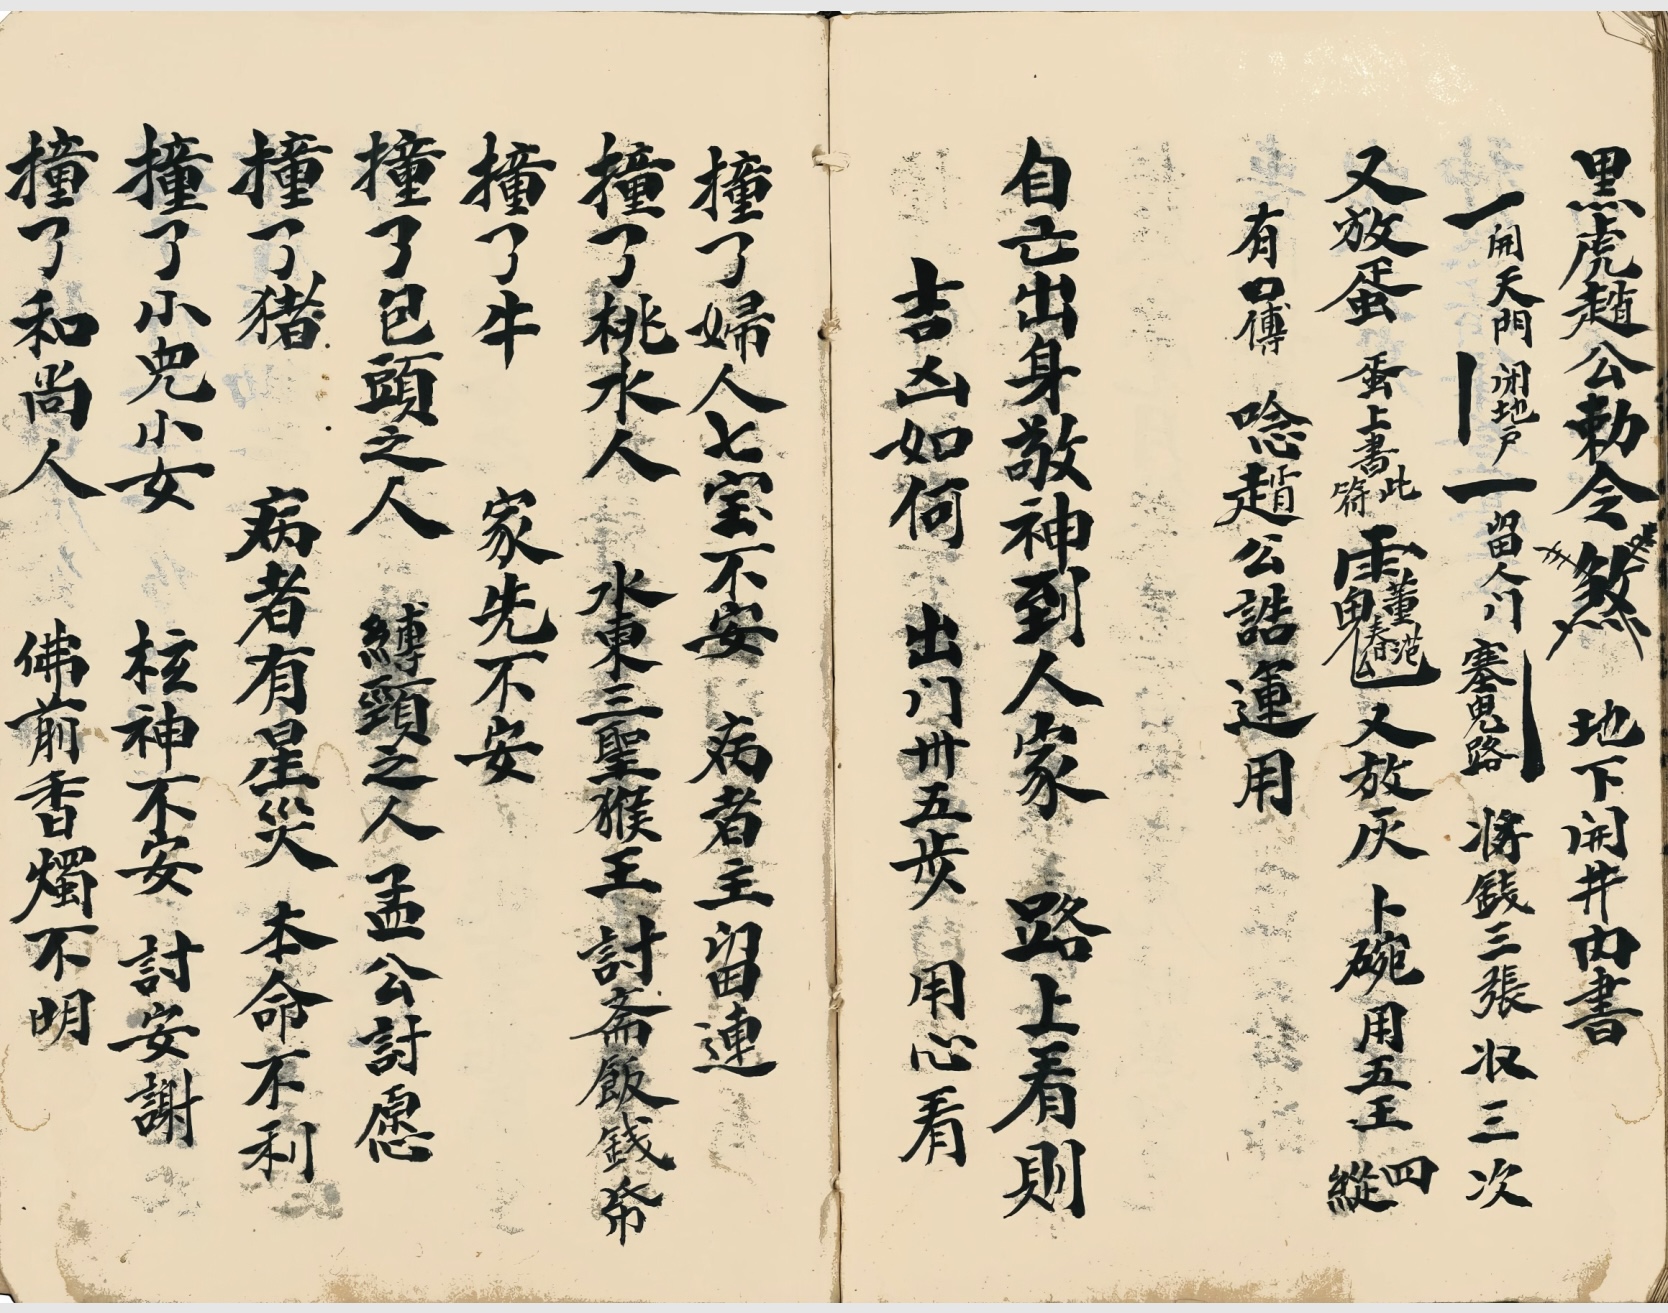 黑虎趙公勅令煞 地下開井內書
一開天門 闭地户 一留人门 塞鬼路 将錢三張 収三次
又放蛋 蛋上書此符 又放灰 卜碗用五王四縱
有口傳 唸趙公誥運用
自己出身敬神到人家 路上看則
吉凶如何 出门卅五步 用心看
撞了婦人七宝不安 病者主留連
撞了桃水人 水東三聖猴王討斎飯錢希
撞了牛 家先不安
撞了包頭之人 縛頸之人 孟公討愿
撞了猪 病者有星災 本命不利
撞了小兒小女 核神不安 討安謝
撞了和尚人 佛前香燭不明